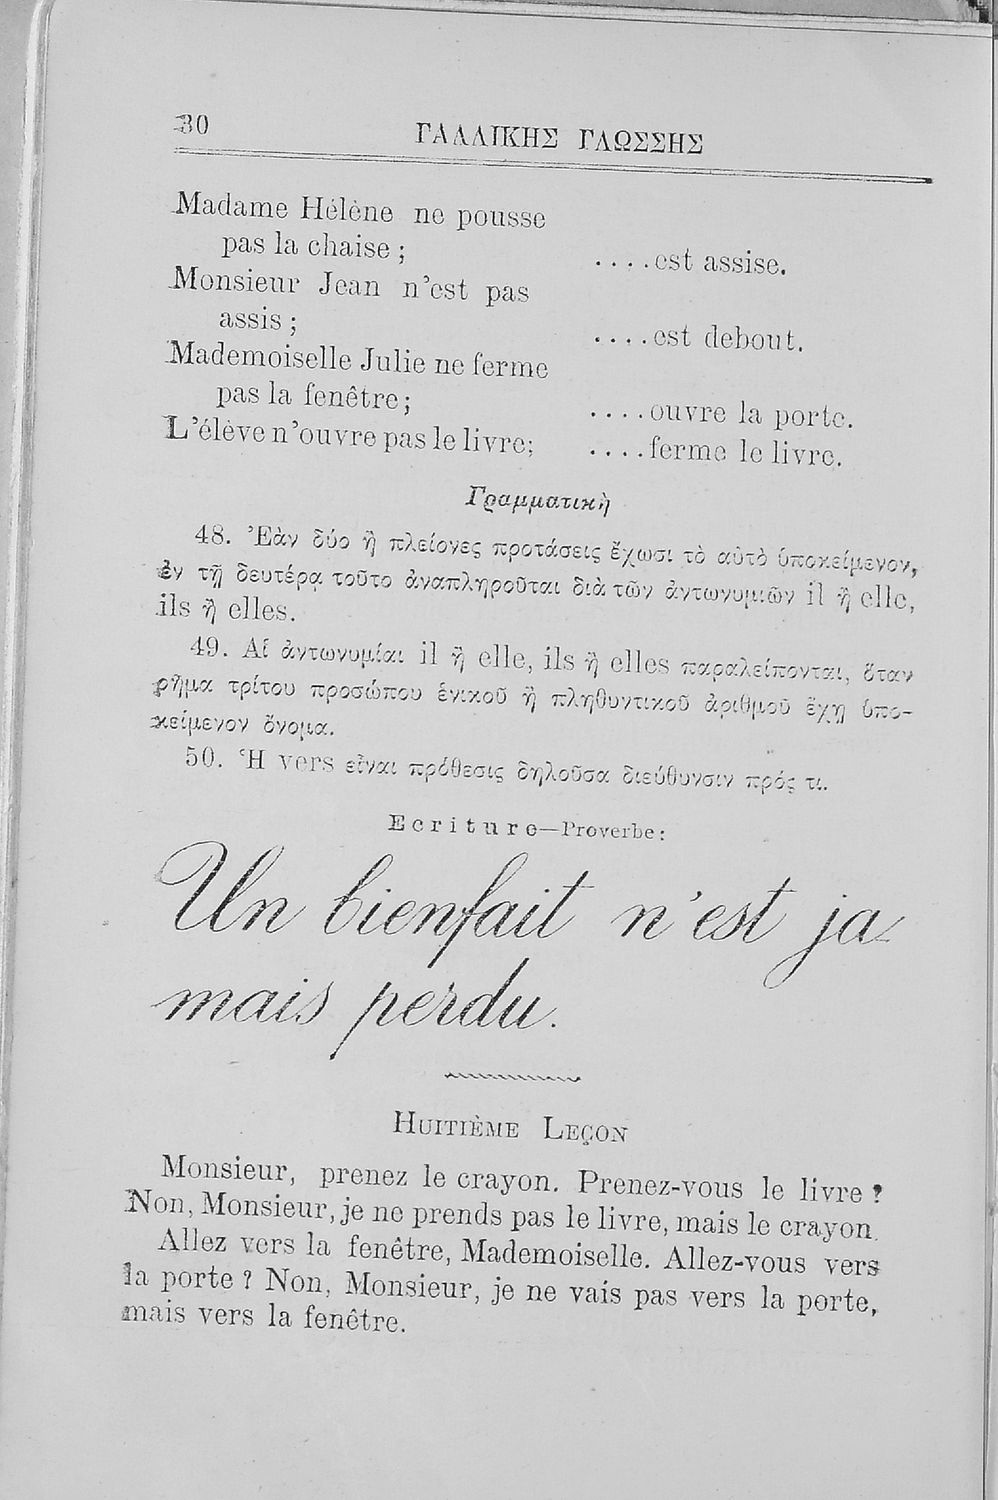 30
ΓΑΛΛΙΚΗΣ ΓΛΩΣΣΗΣ
Madame Hélène ne pousse
pas la chaise ; ....est assise.
Monsieur Jean n'est pas
assis ; ....est debout.
Mademoiselle Julie ne ferme
pas la fenêtre; ....ouvre la porte.
L'élève n'ouvre pas le livre; ....ferme le livre.
Γραμματικὴ
48. Ἐὰν δύο ἢ πλείονες προτάσεις ἔχωσι τὸ αὐτὸ ὑποκείμενον,
ἐν τῇ δευτέρᾳ τοῦτο ἀναπληροῦται διὰ τῶν ἀντωνυμιῶν il ἢ elle,
ils ἢ elles.
49. Αἱ ἀντωνυμίαι il ἢ elle, ils ἢ elles παραλείπονται, ὅταν
ρῆμα τρίτου προσώπου ἑνικοῦ ἢ πληθυντικοῦ ἀριθμοῦ ἔχῃ ὑπο-
κείμενον ὄνομα.
50. Ἡ vers εἶναι πρόθεσις δηλοῦσα διεύθυνσιν πρός τι.
Ecriture—Proverbe:
Un bienfait n'est ja-
mais perdu.
HUITIÈME LEÇON
Monsieur, prenez le crayon. Prenez-vous le livre ?
Non, Monsieur, je ne prends pas le livre, mais le crayon.
Allez vers la fenêtre, Mademoiselle. Allez-vous vers
la porte ? Non, Monsieur, je ne vais pas vers la porte,
mais vers la fenêtre.